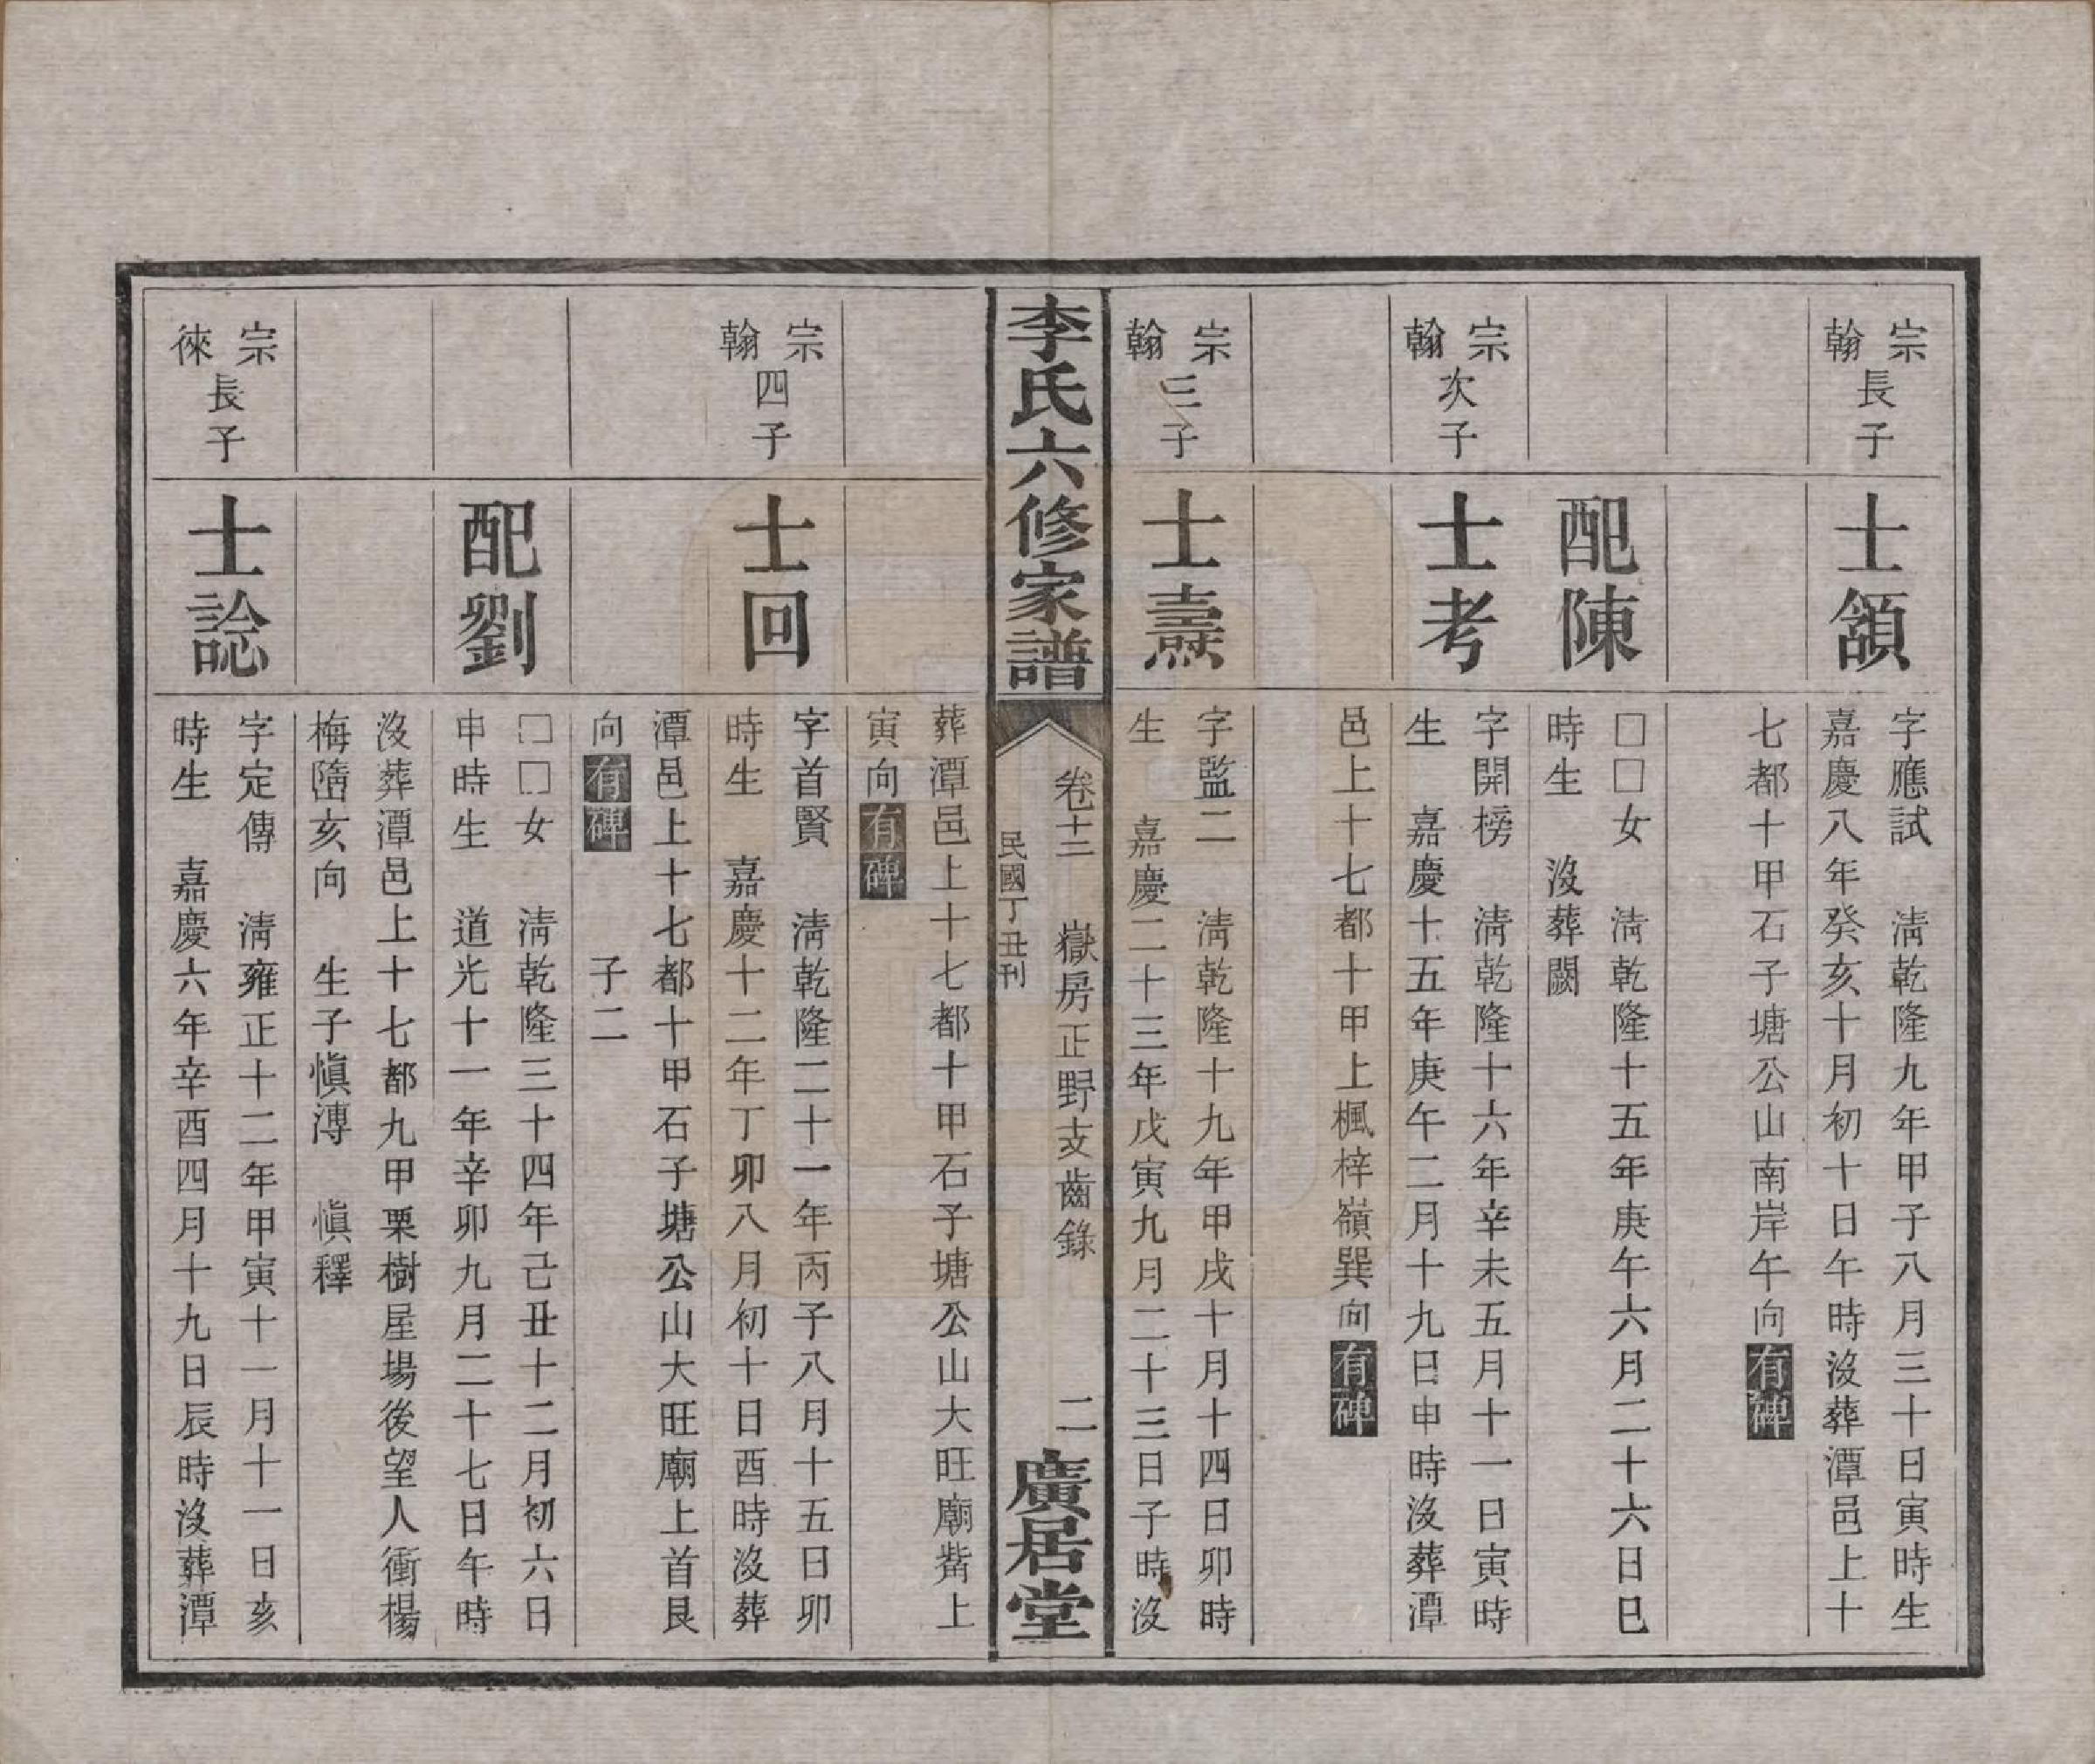 宗翰長子
士頟
字應試　淸乾隆九年甲子八月三十日寅時生
嘉慶八年癸亥十月初十日午時沒葬潭邑上十
七都十甲石子塘公山南岸午向有碑
配陳
□□女　淸乾隆十五年庚午六月二十六日巳
時生　沒葬闕
宗翰次子
士考
字開榜　淸乾隆十六年辛未五月十一日寅時
生　嘉慶十五年庚午二月十九日申時沒葬潭
邑上十七都十甲上楓梓嶺巽向有碑
宗翰三子
士燾
字監二　淸乾隆十九年甲戌十月十四日卯時
生　嘉慶二十三年戊寅九月二十三日子時沒
李氏六修家譜
卷十二　嶽房正野支齒錄　二
民國丁丑刊
廣居堂
葬潭邑上十七都十甲石子塘公山大旺廟觜上
寅向有碑
宗翰四子
士回
字首賢　淸乾隆二十一年丙子八月十五日卯
時生　嘉慶十二年丁卯八月初十日酉時沒葬
潭邑上十七都十甲石子塘公山大旺廟上首艮
向有碑　子二
配劉
□□女　淸乾隆三十四年己丑十二月初六日
申時生　道光十一年辛卯九月二十七日午時
沒葬潭邑上十七都九甲栗樹屋場後望人衝楊
梅㘯亥向　生子愼漙　愼釋
宗徠長子
士諗
字定傳　淸雍正十二年甲寅十一月十一日亥
時生　嘉慶六年辛酉四月十九日辰時沒葬潭